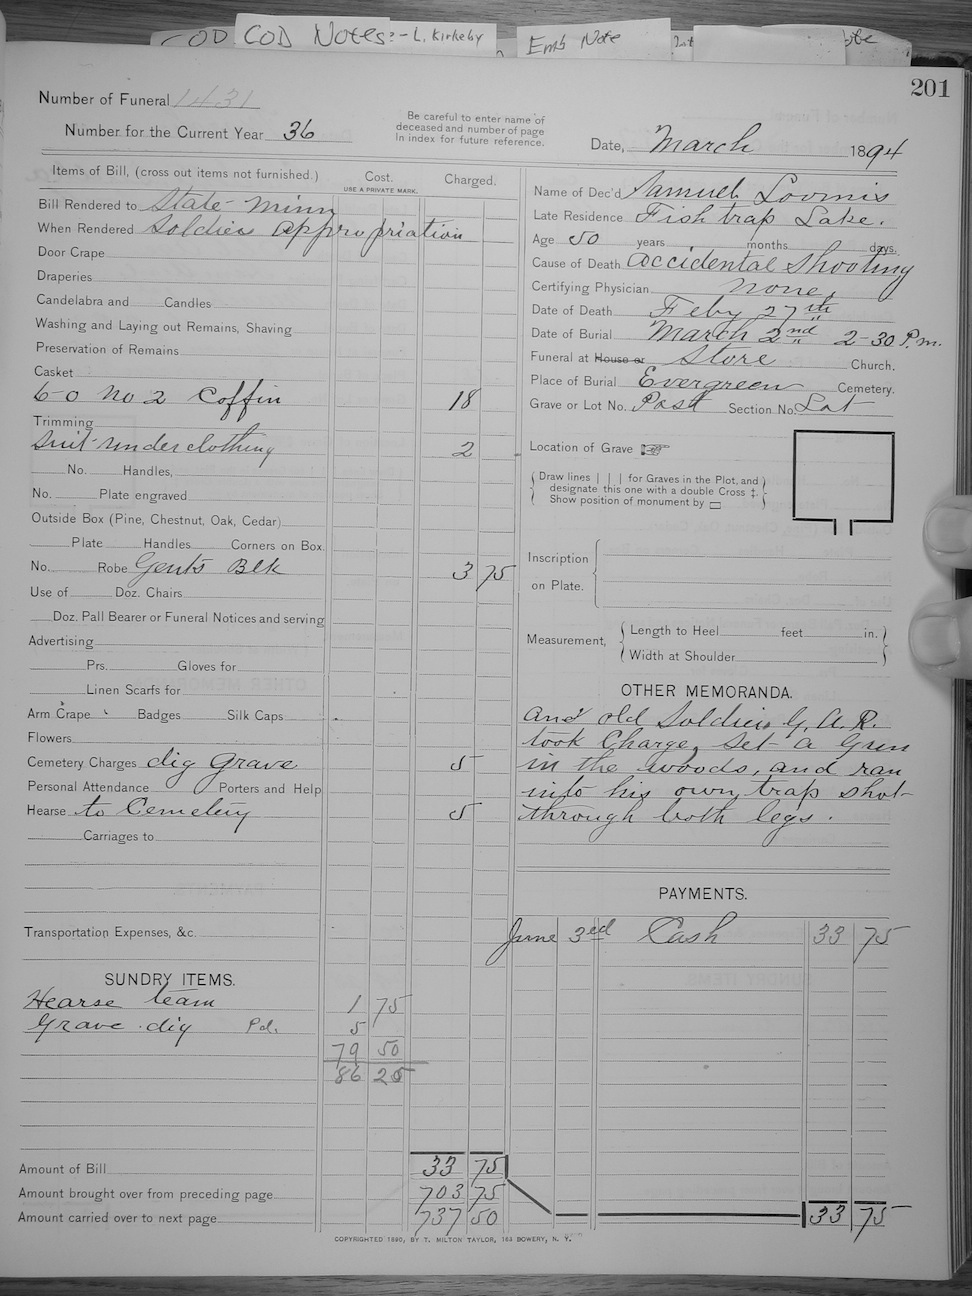 OD COD Notes:-L. Kirkeby
Emb Note
201
Number of Funeral 1431
Number for the Current Year 36
Be careful to enter name of
deceased and number of page
In index for future reference.
Date, March 1894
Items of Bill, (cross out items not furnished.) Cost. Charged.
USE A PRIVATE MARK.
Bill Rendered to State Minn
When Rendered Soldiers appropriation
Door Crape
Draperies
Candelabra and Candles
Washing and Laying out Remains, Shaving
Preservation of Remains
Casket
6-0 No 2 Coffin 18
Trimming
Suit underclothing 2
No. Handles,
No. Plate engraved
Outside Box (Pine, Chestnut, Oak, Cedar)
Plate Handles Corners on Box.
No. Robe Gents Blk 3 75
Use of Doz. Chairs
Doz. Pall Bearer or Funeral Notices and serving
Advertising
Prs. Gloves for
Linen Scarfs for
Arm Crape Badges Silk Caps
Flowers
Cemetery Charges dig Grave 5
Personal Attendance Porters and Help
Hearse to Cemetery 5
Carriages to
Transportation Expenses, &c.
SUNDRY ITEMS.
Hearse team 1 75
Grave dig Pd. 5
79 50
86 25
Amount of Bill 33 75
Amount brought over from preceding page 703 75
Amount carried over to next page 737 50
Name of Dec'd Samuel Loomis
Late Residence Fish trap Lake.
Age 50 years months days.
Cause of Death accidental shooting
Certifying Physician none.
Date of Death Feby 27th
Date of Burial March 2nd 2-30 P.m.
Funeral at House or Store Church.
Place of Burial Evergreen Cemetery.
Grave or Lot No. Post Section No. Lot
Location of Grave
Draw lines | | | for Graves in the Plot, and
designate this one with a double Cross ‡.
Show position of monument by
Inscription
on Plate.
Measurement, Length to Heel feet in.
Width at Shoulder
OTHER MEMORANDA.
and old Soldier G. A. R.
took Charge, Set a Gun
in the woods, and ran
into his own trap shot
through both legs.
PAYMENTS.
June 3ed Cash 33 75
33 75
COPYRIGHTED 1890, BY T. MILTON TAYLOR, 163 BOWERY, N. Y.